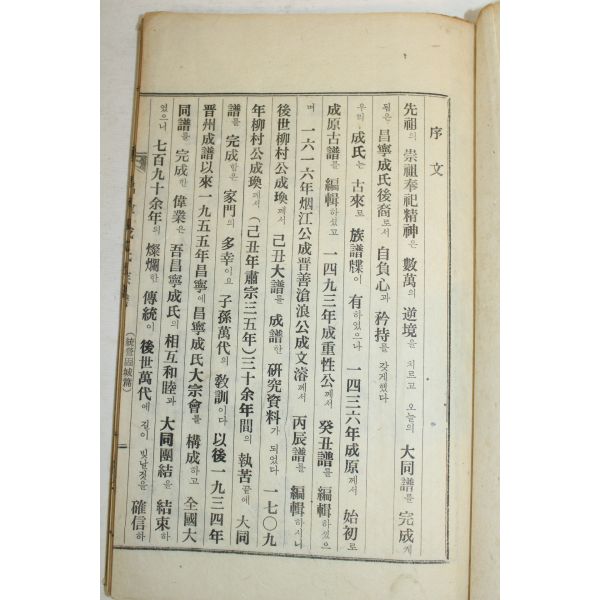 序文
先祖의 崇祖奉祀精神은 數萬의 逆境을 치르고 오늘의 大同譜를 完成케
됨은 昌寧成氏後裔로서 自負心과 矜持를 갖게했다
우리 成氏는 古來로 族譜牒이 有하였으나 一四三六年成原께서 始初로
成原古譜를 編輯하셨고 一四九三年成重性公께서 癸丑譜를 編輯하셨으
며 一六一六年烟江公成晋善滄浪公成文濬께서 丙辰譜를 編輯하시니
後世柳村公成瑍께서 己丑大譜를 成譜한 硏究資料가 되었다 一七〇九
年柳村公成瑍께서 (己丑年肅宗三五年)三十余年間의 執苦끝에 大同
譜를 完成함은 家門의 多幸이요 子孫萬代의 敎訓이다 以後一九三四年
晋州成譜以來一九五五年昌寧에 昌寧成氏大宗會를 構成하고 全國大
同譜를 完成한 偉業은 吾昌寧成氏의 相互和睦과 大同團結을 結束하
였으니 七百九十余年의 燦爛한 傳統이 後世萬代에 길이 빛날것을 確信하
(統營固城篇)